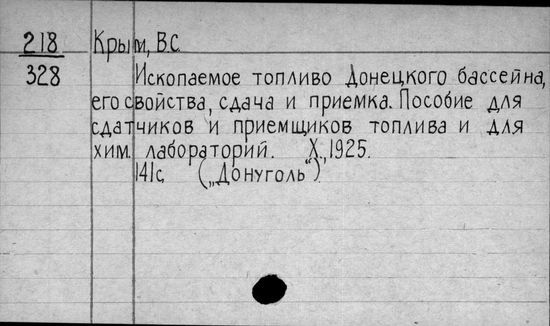 218 Крым, В.С.
328 Ископаемое топливо Донецкого бассейна,
его свойства, сдача и приемка. Пособие для
сдатчиков и приемщиков топлива и для
хим. лабораторий. Х., 1925.
141с. („Донуголь“).